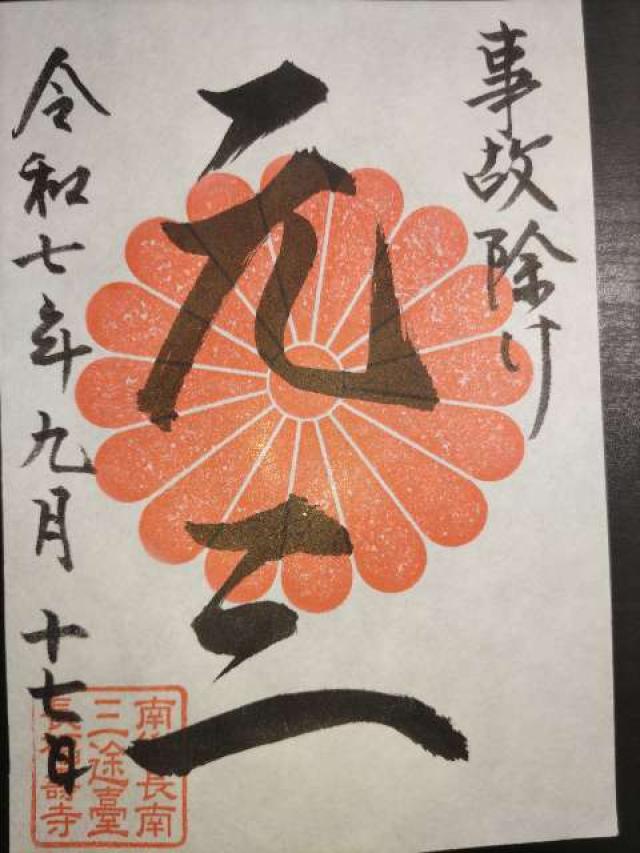 事故除け
元三
令和七年九月十七日
南 長南
三途臺
長福壽寺